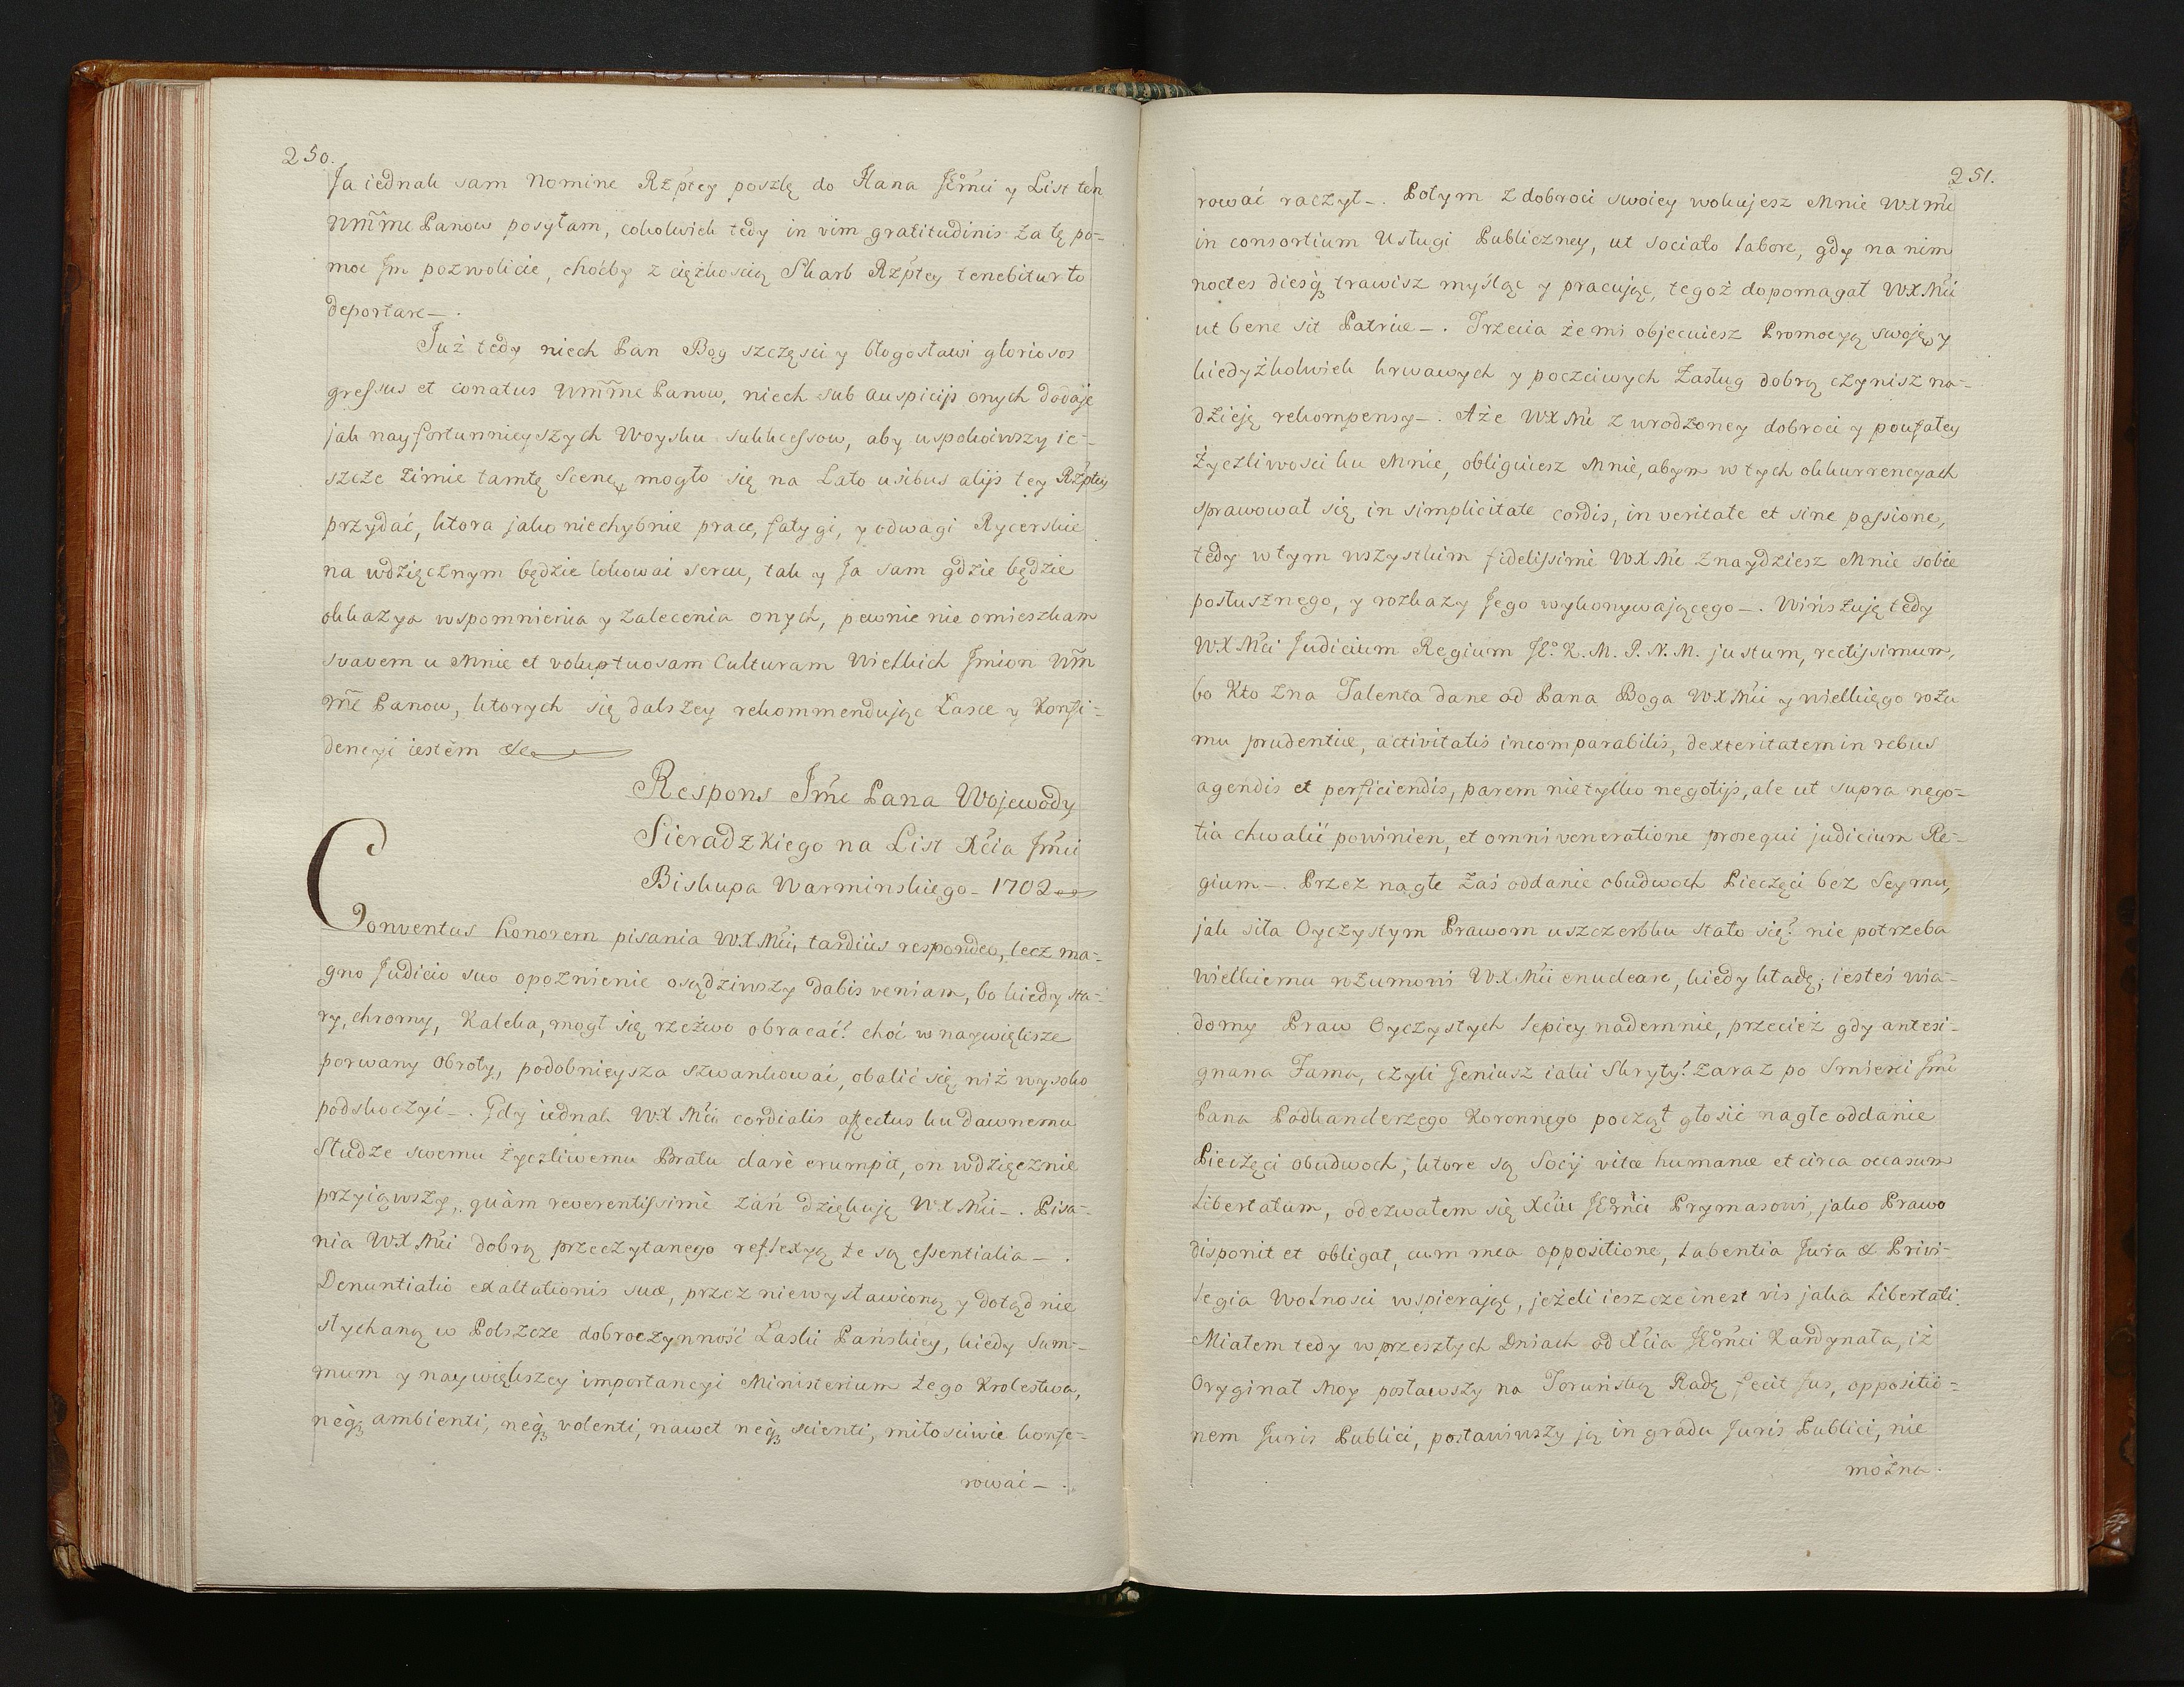 250.
Ja iednak sam Nomine Rzptey poszlę do Hana JEmci y List ten
WmMc Panow posyłam, cokolwiek tedy in vim gratitudinis za tę po-
moc Jm pozwolicie, choćby z ciężkoscią Skarb Rzptey tenebitur to
deportare —.
Już tedy niech Pan Bog szczęsci y błogosławi gloriosos
gressus et conatus WmMc Panow, niech sub auspicijs onych dodaje
jak nayfortunnieyszych Woysku sukcessow, aby uspokoiwszy ie-
szcze zimie tamtę Scenę, mogło się na Lato usibus alijs tey Rzptey
przydać, ktora jako niechybnie prace, fatygi, y odwagi Rycerskie
na wdzięcznym będzie lokować sercu, tak y Ja sam gdzie będzie
okkazya wspomnienia y zalecenia onych, pewnie nie omieszkam
svavem u Mnie et voluptuosam Culturam Wielkich Jmion Wm
Mc Panow, ktorych się dalszey rekommendując Łasce y Konfi-
dencyi iestem &c
Respons Jmc Pana Wojewody
Sieradzkiego na List Xcia Jmci
Biskupa Warminskiego - 1702
Conventus honorem pisania WXMci, tardiùs respondeo, lecz ma-
gno Judicio suo opoznienie osądziwszy dabis veniam, bo kiedy sta-
ry, chromy, Kaleka, mogł się rzeźwo obracać? choć w naywiększe
porwany obroty, podobnieysza szwankować, obalić się, niż wysoko
podskoczyć —. Gdy iednak WXMci cordialis affectus ku dawnemu
Słudze swemu życzliwemu Bratu clarè erumpit, on wdzięcznie
przyiąwszy, quàm reverentissimè zań dziękuję WXMci —. Pisa-
nia WXMci dobrą przeczytanego reflexyą te są essentialia —.
Denuntiatio exaltationis suæ, przez niewysławioną y dotąd nie
słychaną w Polszcze dobroczynność Łaski Pańskiey, kiedy Sum-
mum y naywiększey importancyi Ministerium tego Krolestwa,
neq, ambienti, neq, volenti, nawet neq, scienti, miłosciwie konfe-
rować —.
251.
rować raczył —. Potym z dobroci swoiey wokujesz Mnie WXMc
in consortium Usługi Publiczney, ut sociato labore, gdy na nim
noctes diesq, trawisz myśląc y pracując, tegoż dopomagał WXMci
ut bene sit Patriæ —. Trzecia że mi objecuiesz Promocyą swoję, y
kiedyżkolwiek krwawych y poczciwych Zasług dobrą czynisz na-
dzieję rekompensy —. Aże WXMc z wrodzoney dobroci y poufałey
Życzliwosci ku Mnie, obliguiesz Mnie, abym w tych okkurrencyach
sprawował się in simplicitate cordis, in veritate et sine passione,
tedy w tym wszystkim fidelissimè WXMc znaydziesz Mnie sobie
posłusznego, y rozkazy Jego wykonywającego —. Winszuję tedy
WXMci Judicium Regium JE. K. M. P. N. M. justum, rectissimum,
bo Kto zna Talenta dane od Pana Boga WXMci y wielkiego rozu
mu prudentiæ, activitatis incomparabilis, dexteritatem in rebus
agendis et perficiendis, parem nie tylko negotijs, ale ut supra nego-
tia chwalić powinien, et omni veneratione prosequi judicium Re-
gium —. Przez nagłe zaś oddanie obudwoch Pieczęci bez Seymu,
jak siła Oyczystym Prawom uszczerbku stało się? nie potrzeba
wielkiemu rozumowi WXMci enucleare, kiedy kładę; iesteś wia-
domy Praw Oyczystych lepiey nademnie, przecież gdy antesi-
gnana Fama, czyli Geniusz iaki skryty? zaraz po Smierci Jmc
Pana Podkanclerzego Koronnego począł głosić nagłe oddanie
Pieczęci obudwoch, ktore są Socij vitæ humanæ et circa occasum
Libertatum, odezwałem się Xciu JEmci Prymasowi, jako Prawo
disponit et obligat, cum mea oppositione, labentia Jura & Privi-
legia Wolnosci wspierając, jeżeli ieszcze inest vis jaka Libertati.
Miałem tedy w przeszłych Dniach od Xcia JEmci Kardynała, iż
Oryginał Moy posławszy na Toruńską Radę fecit Jus, oppositio-
nem Juris Publici, postawiwszy ją in gradu Juris Publici, nie
można.